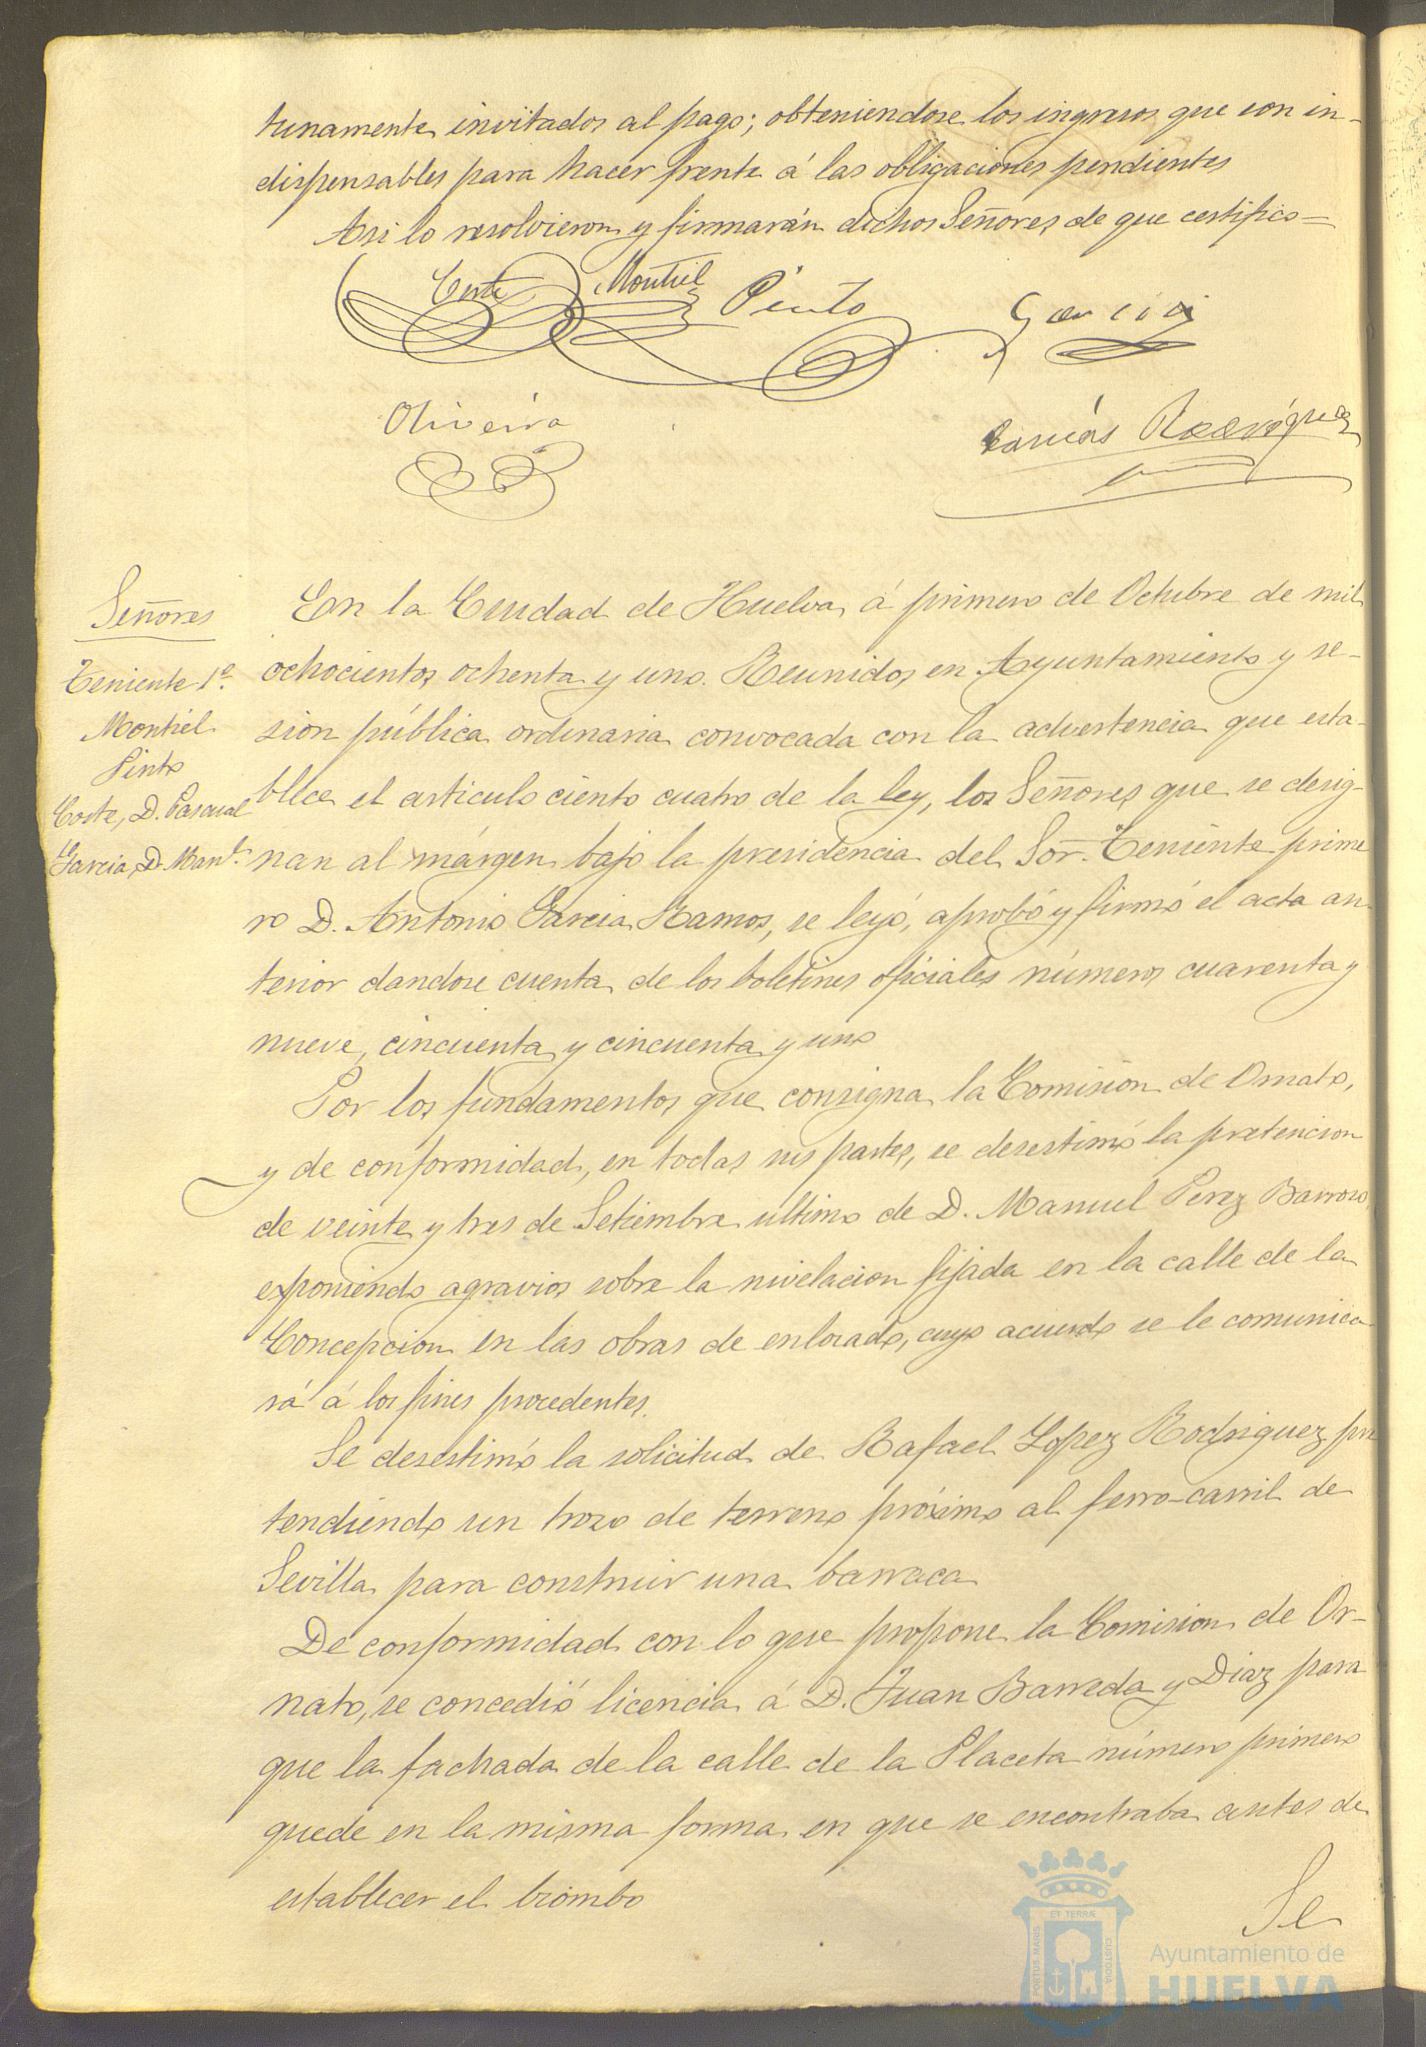 tunamente invitados al pago; obteniendose los ingresos que son in-
dispensables para hacer frente á las obligaciones pendientes
Asi lo resolvieron y firmarán dichos Señores de que certifico=
Coste Montiel Pinto García
Oliveira
Rodríguez
Señores
Teniente 1º
Montiel
Pinto
Coste, D. Pascual
Garcia, D. Manl.
En la Ciudad de Huelva á primero de Octubre de mil
ochocientos ochenta y uno. Reunidos en Ayuntamiento y se-
sion pública ordinaria convocada con la advertencia que esta-
blece el articulo ciento cuatro de la ley, los Señores que se desig-
nan al márgen bajo la presidencia del Sor. Teniente prime
ro D. Antonio Garcia Ramos, se leyó, aprobó y firmó el acta an-
terior dandose cuenta de los boletines oficiales números cuarenta y
nueve, cincuenta y cincuenta y uno
Por los fundamentos que consigna la Comision de Ornato,
y de conformidad, en todas sus partes, se desestimó la pretencion
de veinte y tres de Setiembre último de D. Manuel Perez Barroso
exponiendo agravios sobre la nivelacion fijada en la calle de la
Concepcion en las obras de enlosado, cuyo acuerdo se le comunica
rá á los fines procedentes.
Se desestimó la solicitud de Rafael Lopez Rodriguez pre
tendiendo un trozo de terreno próximo al ferro-carril de
Sevilla para construir una barraca
De conformidad con lo que propone la Comision de Or-
nato, se concedió licencia á D. Juan Barreda y Diaz para
que la fachada de la calle de la Placeta número primero
quede en la misma forma en que se encontraba antes de
establecer el biombo
Se
ET TERRÆ
PORTUS MARIS
CUSTODIA
Ayuntamiento de
HUELVA